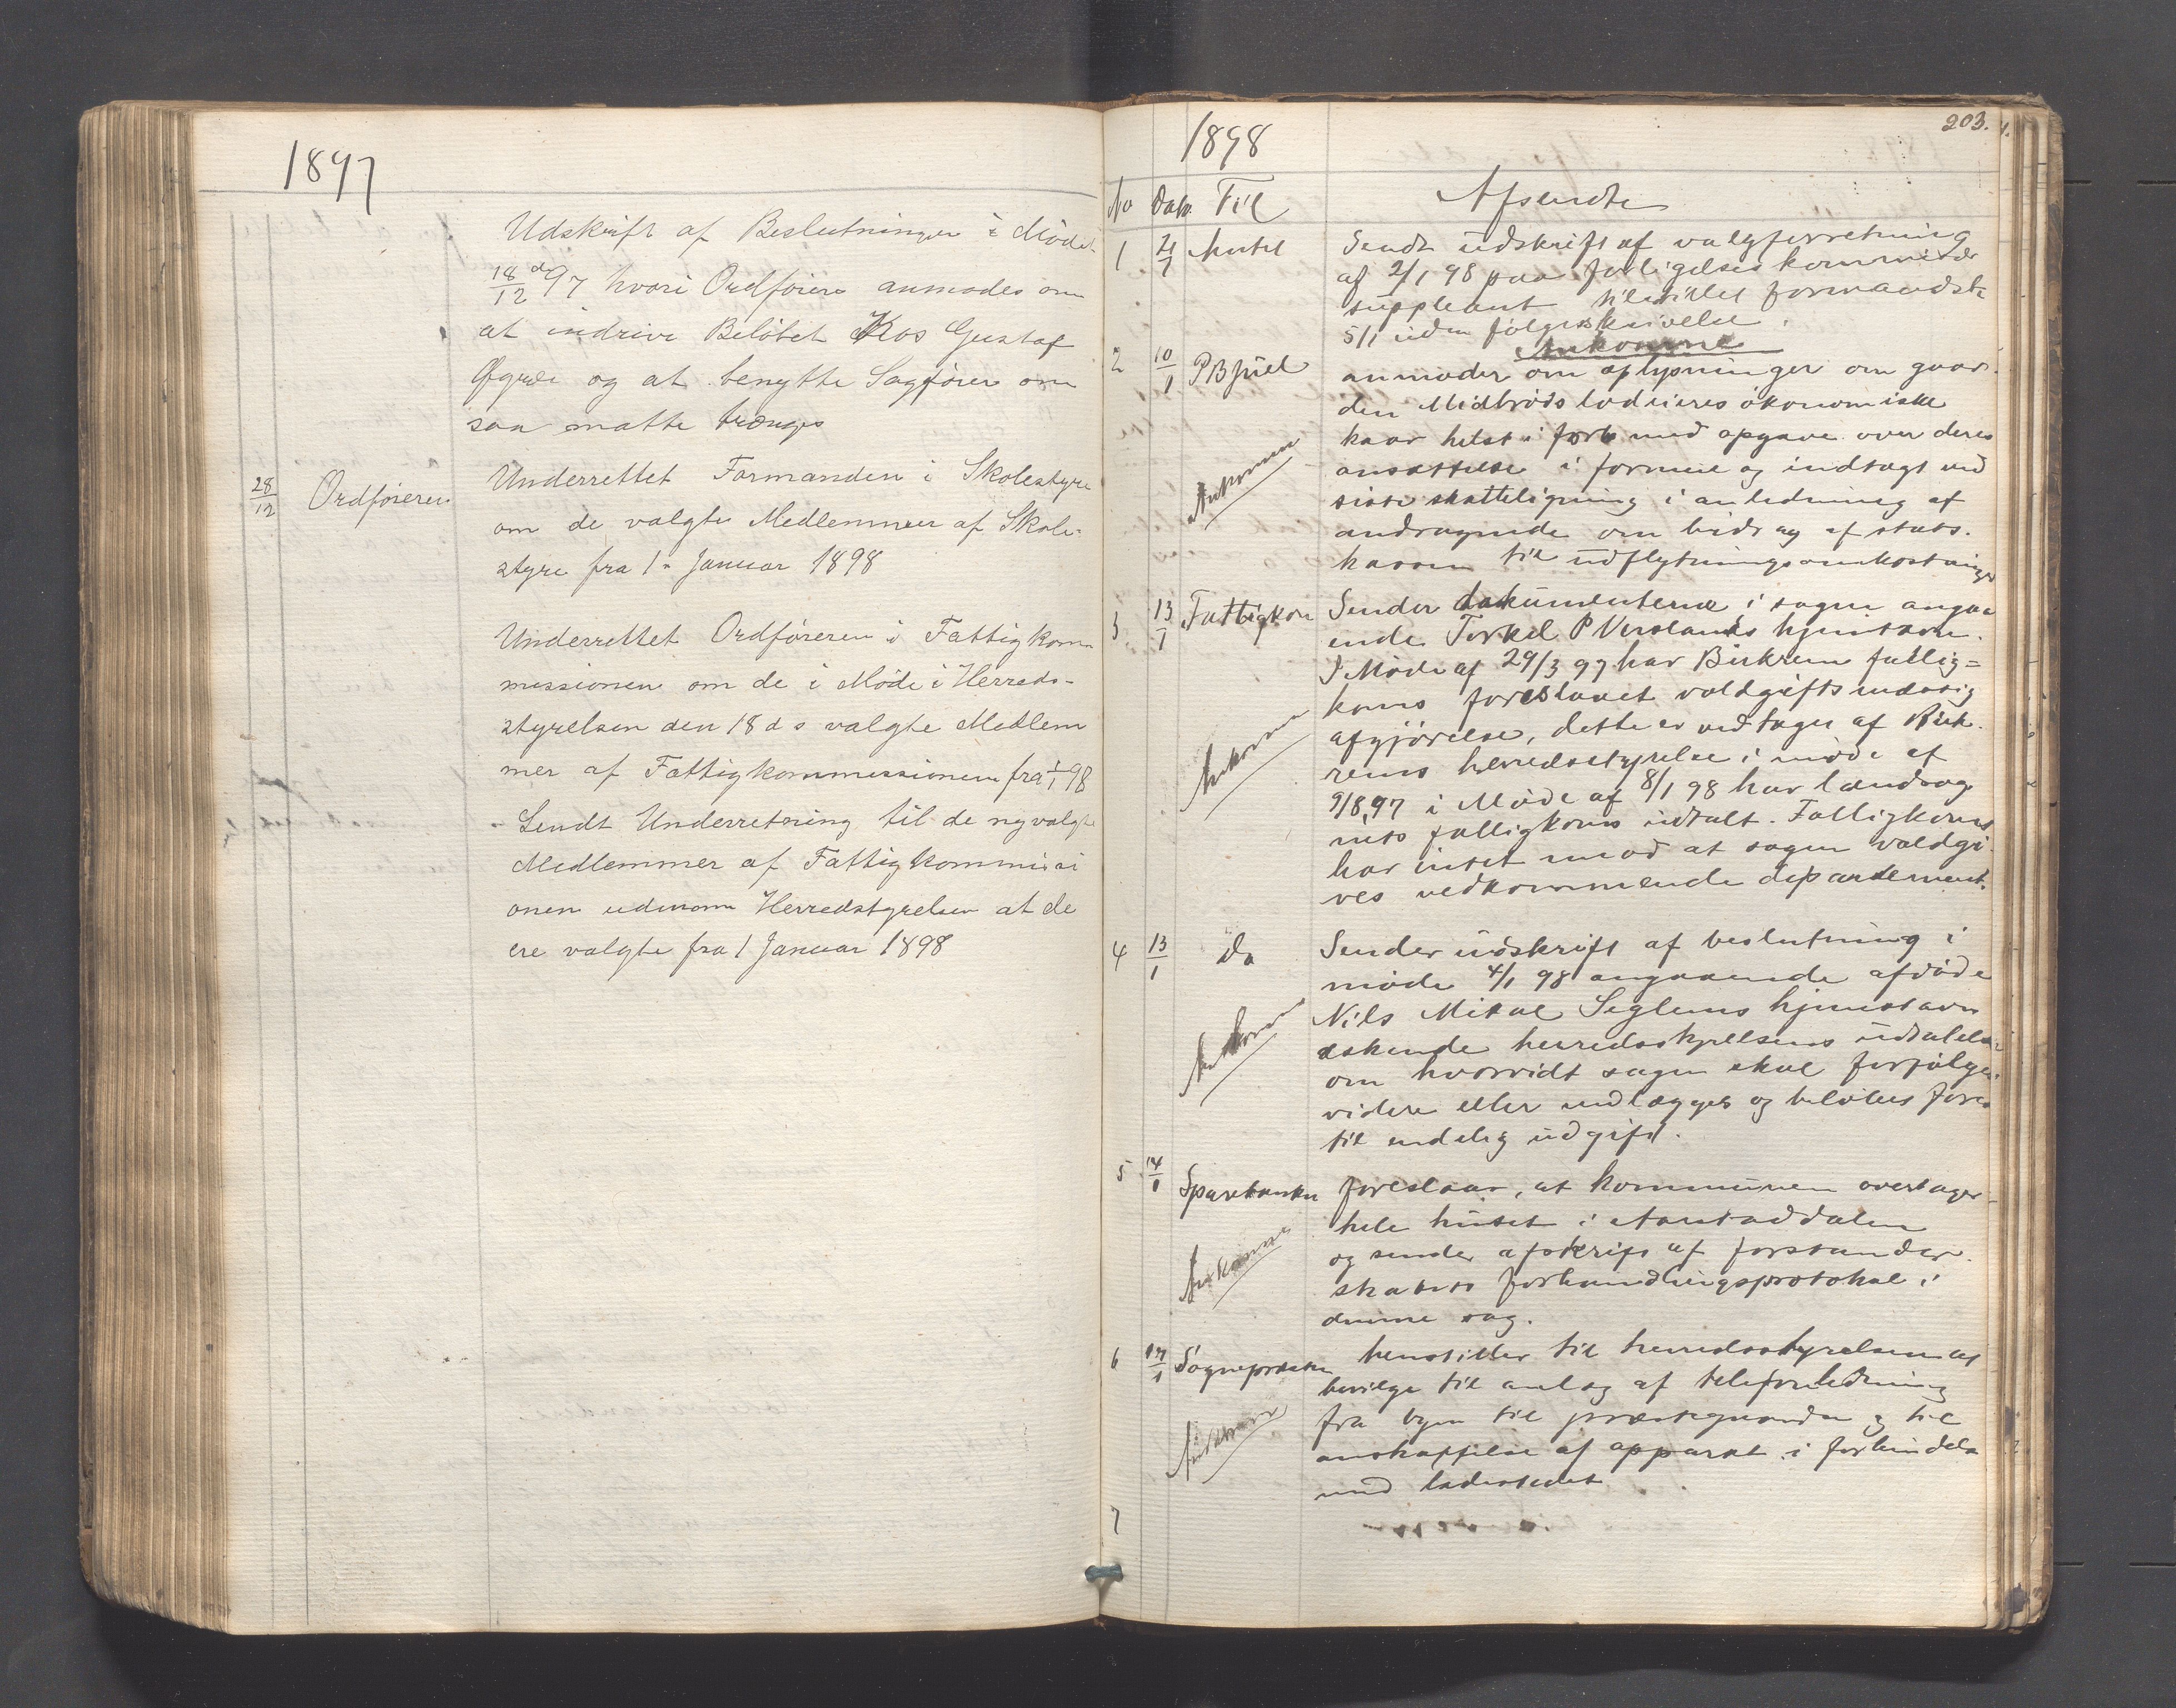 1897
Udskrift af Beslutninger i Mödet
18/12 97 hvori Ordförere anmodes om
at indrive Belöbet Kos Gustaf
Øgræi og at benytte Sagförer om
saa matte trænges
28/12 Ordföreren
Underrettet Formanden i Skolestyre
om de valgte Medlemmer af Skole-
styre fra 1. Januar 1898
Underrettet Ordföreren i Fattigkom
missionen om de i Möde i Herreds-
styrelsen den 18 ds valgte Medlem
mer af Fattigkommissionen fra 1/1 98
Sendt Underretning til de nyvalgte
Medlemmer af Fattigkommissi
onen udenom Herredstyrelsen at de
ere valgte fra 1 Januar 1898
203.
1898
No Dato Til Afsendte
1
Sendt udskrift af valgforretning
af 2/1 98 paa forligelseskommisær
suppleant tilstillet formandsk
5/1 uden fölgeskrivelse.
Ankomne
2 10/1 P B Juel
anmoder om oplysninger om gaar-
den Midbröds lodeieres ökonomiske
kaar helst i forb med opgave over deres
ansættelse i formue og indtægt ved
siste skatteligning i anledning af
andragende om bidrag af stats-
kassen til udflytningsomkostninger
Ankomne
3 13/1 Fattigkom
Sender dokumenterne i sagen angaa
ende Torkel P Verslands hjemstavn.
I Möde af 29/3 97 har Birkrem fattig=
koms foreslaaet voldgiftsmæssig
afgjörelse, dette er vedtaget af Birk-
rems herredsstyrelse i möde af
9/8 97 i Möde af 8/1 98 har landsog
nets fattigkoms udtalt. Fattigkoms
har intet imod at sagen voldgi-
ves vedkommende departement.
Ankomne
4 13/1 Do
Sender udskrift af beslutning i
möde 4/1 98 angaaende afdöde
Nils Mikal Seglems hjemstavn
æskende herredsstyrelsens udtalelse
om hvorvidt sagen skal forfölges
videre eller nedlægges og belöbet föres
til endelig udgift.
Ankomne
5 14/1 Sparebanken
foreslaar, at kommunen overtager
hele huset i Aarstaddalen
og sender afskrift af forstander-
skabets forhandlingsprotokol i
denne sag.
Ankomne
6 17/1 Sognepresten
henstiller til herredsstyrelsen at
bevilge til anlæg af telefonledning
fra byen til præstegaarden og til
anskaffelse af apparat i forbindelse
med ladestedet
Ankomne
7